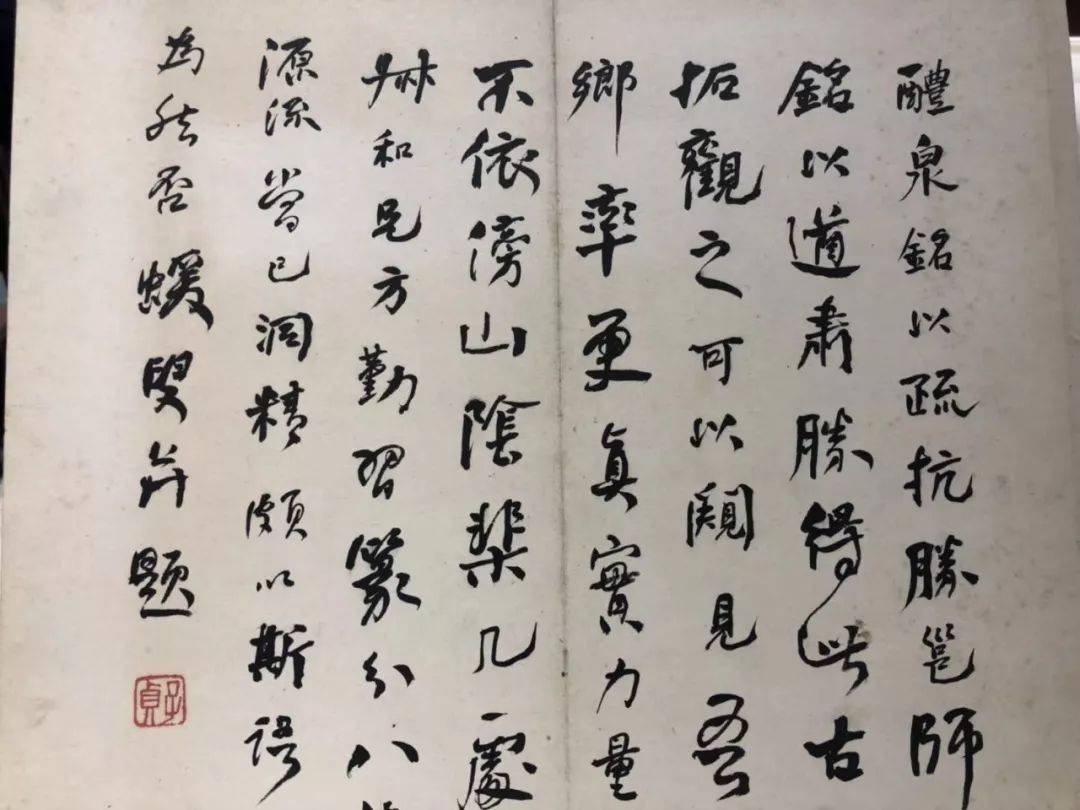 醴泉銘以疏抗勝邕師
銘以遒肅勝得此古
拓觀之可以闚見吾
鄉率更真實力量
不依傍山陰棐几處
艸和兄方勤習篆分八
源流當已洞精頗以斯語
為然否蝯叟并題
子貞